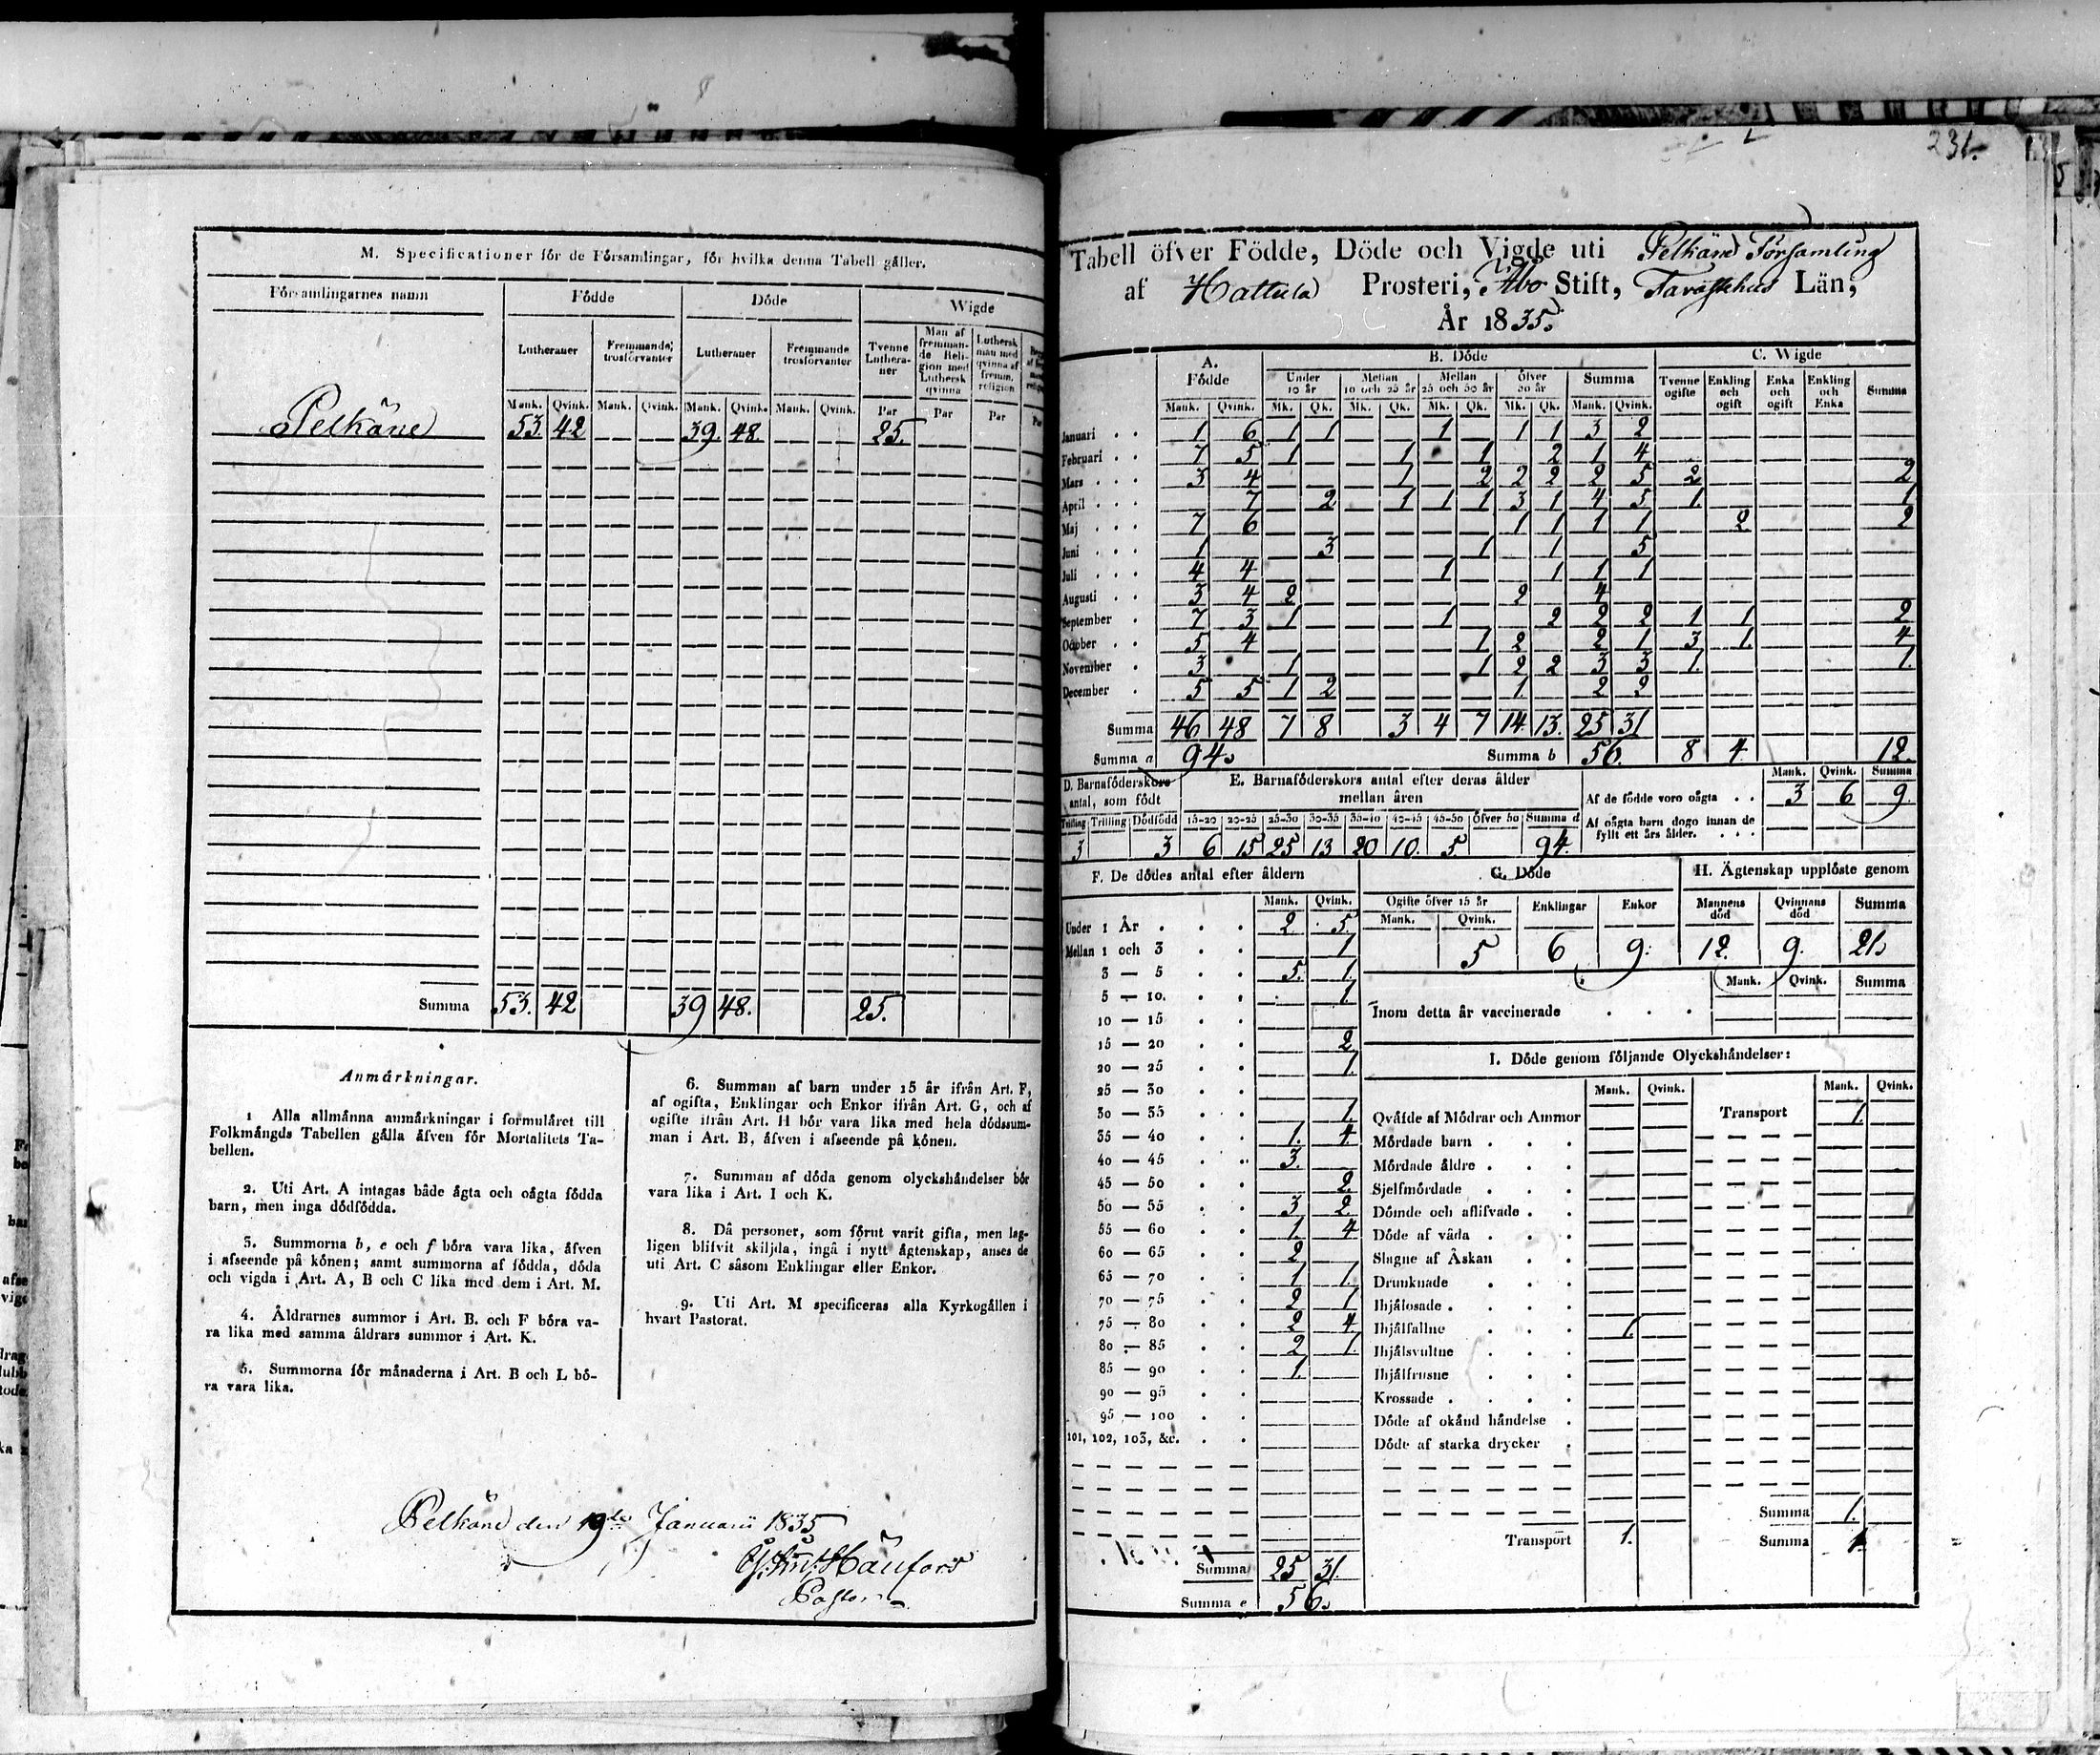 M. Specificationer för de Församlingar, för hvilka denna Tabell gäller.
Församlingarnes namn Födde Döde Wigde
Lutheraner Fremmande trosförvanter Lutheraner Fremmande trosförvanter Tvenne Lutheraner Man af fremmande Religion med Luthersk qvinna Luthersk man med qvinna af fremm. religion
Mank. Qvink. Mank. Qvink. Mank. Qvink. Mank. Qvink. Par Par Par
Pelkäne 53. 42 39. 48. 25.
Summa 53. 42 39 48. 25.
Anmärkningar.
1 Alla allmänna anmärkningar i formuläret till
Folkmängds Tabellen gälla äfven för Mortalitets Ta-
bellen.
2. Uti Art. A intagas både ägta och oägta födda
barn, men inga dödfödda.
3. Summorna b, e och f böra vara lika, äfven
i afseende på könen; samt summorna af födda, döda
och vigda i Art. A, B och C lika med dem i Art. M.
4. Åldrarnes summor i Art. B. och F böra va-
ra lika med samma åldrars summor i Art. K.
5. Summorna för månaderna i Art. B och L bö-
ra vara lika.
6. Summan af barn under 15 år ifrån Art. F,
af ogifta, Enklingar och Enkor ifrån Art. G, och af
ogifte ifrån Art. H bör vara lika med hela dödssum-
man i Art. B, äfven i afseende på könen.
7. Summan af döda genom olyckshändelser bör
vara lika i Art. I och K.
8. Då personer, som förut varit gifta, men lag-
ligen blifvit skiljda, ingå i nytt ägtenskap, anses de
uti Art. C såsom Enklingar eller Enkor.
9. Uti Art. M specificeras alla Kyrkogällen i
hvart Pastorat.
Pelkäne den 19de Januarii 1835
Pastor
231.
Tabell öfver Födde, Döde och Vigde uti Pelkäne Församling
af Hattula Prosteri, Åbo Stift, Tavastehus Län,
År 1835.
A. Födde B. Döde C. Wigde
Under 10 år Mellan 10 och 25 år Mellan 25 och 50 år öfver 50 år Summa Tvenne ogifte Enkling och ogift Enka och ogift Enkling och Enka Summa
Mank. Qvink. Mk. Qk. Mk. Qk. Mk. Qk. Mk. Qk. Mank. Qvink.
Januari . . 1 6 1 1 1 1 1 3 2
Februari . . 7 5 1 1 1 2 1 4
Mars . . . 3 4 1 2 2 2 2 5 2 2
April . . . 7 2 1 1 1 3 1 4 5 1. 1
Maj . . . 7 6 1 1 1 1 2. 2
Juni . . . 1 3 1 1 5
Juli . . . 4 4 1 1 1 1
Augusti . . 3 4 2 2 4
September . 7 3 1 1 2 2 2 1 1 2
October . . 5 4 1 2 2 1 3 1. 4
November . 3 1 1 2 2 3 3 1. 1.
December . 5 5 1 2 1. 2 2
Summa 46 48 7 8 3 4 7 14. 13. 25 31
Summa a 94. Summa b 56. 8 4. 12.
D. Barnaföderskors antal, som födt
E. Barnaföderskors antal efter deras ålder mellan åren
Trilling Dödfödd 15-20 20-25 25-30 30-35 35-40 40-45 45-50 öfver 50 Summa d
3 3 6 15 25 13 20 10. 5 94.
Mank. Qvink. Summa
Af de födde voro oägta . . 3 6 9.
Af oägta barn dogo innan de
fyllt ett års ålder. . . .
F. De dödes antal efter åldern
Mank. Qvink.
Under 1 År . . . 2 5
Mellan 1 och 3 . . 1
3 — 5 . . 5. 1.
5 — 10. . . 1.
10 — 15 . .
15 — 20 . . 2
20 — 25 . . 1.
25 — 30 . .
30 — 35 . . 1.
35 — 40 . . 1. 4.
40 — 45 . . 3.
45 — 50 . . 2.
50 — 55 . . 3 2.
55 — 60 . . 1. 4
60 — 65 . . 2
65 — 70 . . 1 1.
70 — 75 . . 2 1
75 — 80 . . 2 4.
80 — 85 . . 2 1.
85 — 90 . . 1.
90 — 95 . .
95 — 100 . .
101, 102, 103, &c. . .
Summa 25 31.
Summa e 56.
G. Döde
Ogifte öfver 15 år Enklingar Enkor
Mank. Qvink.
5 6 9.
H. Ägtenskap upplöste genom
Mannens död Qvinnans död Summa
12. 9. 21.
Mank. Qvink. Summa
Inom detta år vaccinerade . . .
I. Döde genom följande Olyckshändelser:
Mank. Qvink. Mank. Qvink.
Qväfde af Mödrar och Ammor Transport 1.
Mördade barn . . .
Mördade äldre . . .
Sjelfmördade . . .
Dömde och aflifvade . .
Döde af våda . . .
Slagne af Åskan . .
Drunknade . . .
Ihjälosade . . . .
Ihjälfallne . . . 1.
Ihjälsvultne . . .
Ihjälfrusne . . .
Krossade . . . .
Döde af okänd händelse .
Döde af starka drycker .
Summa 1.
Transport 1. Summa 1.